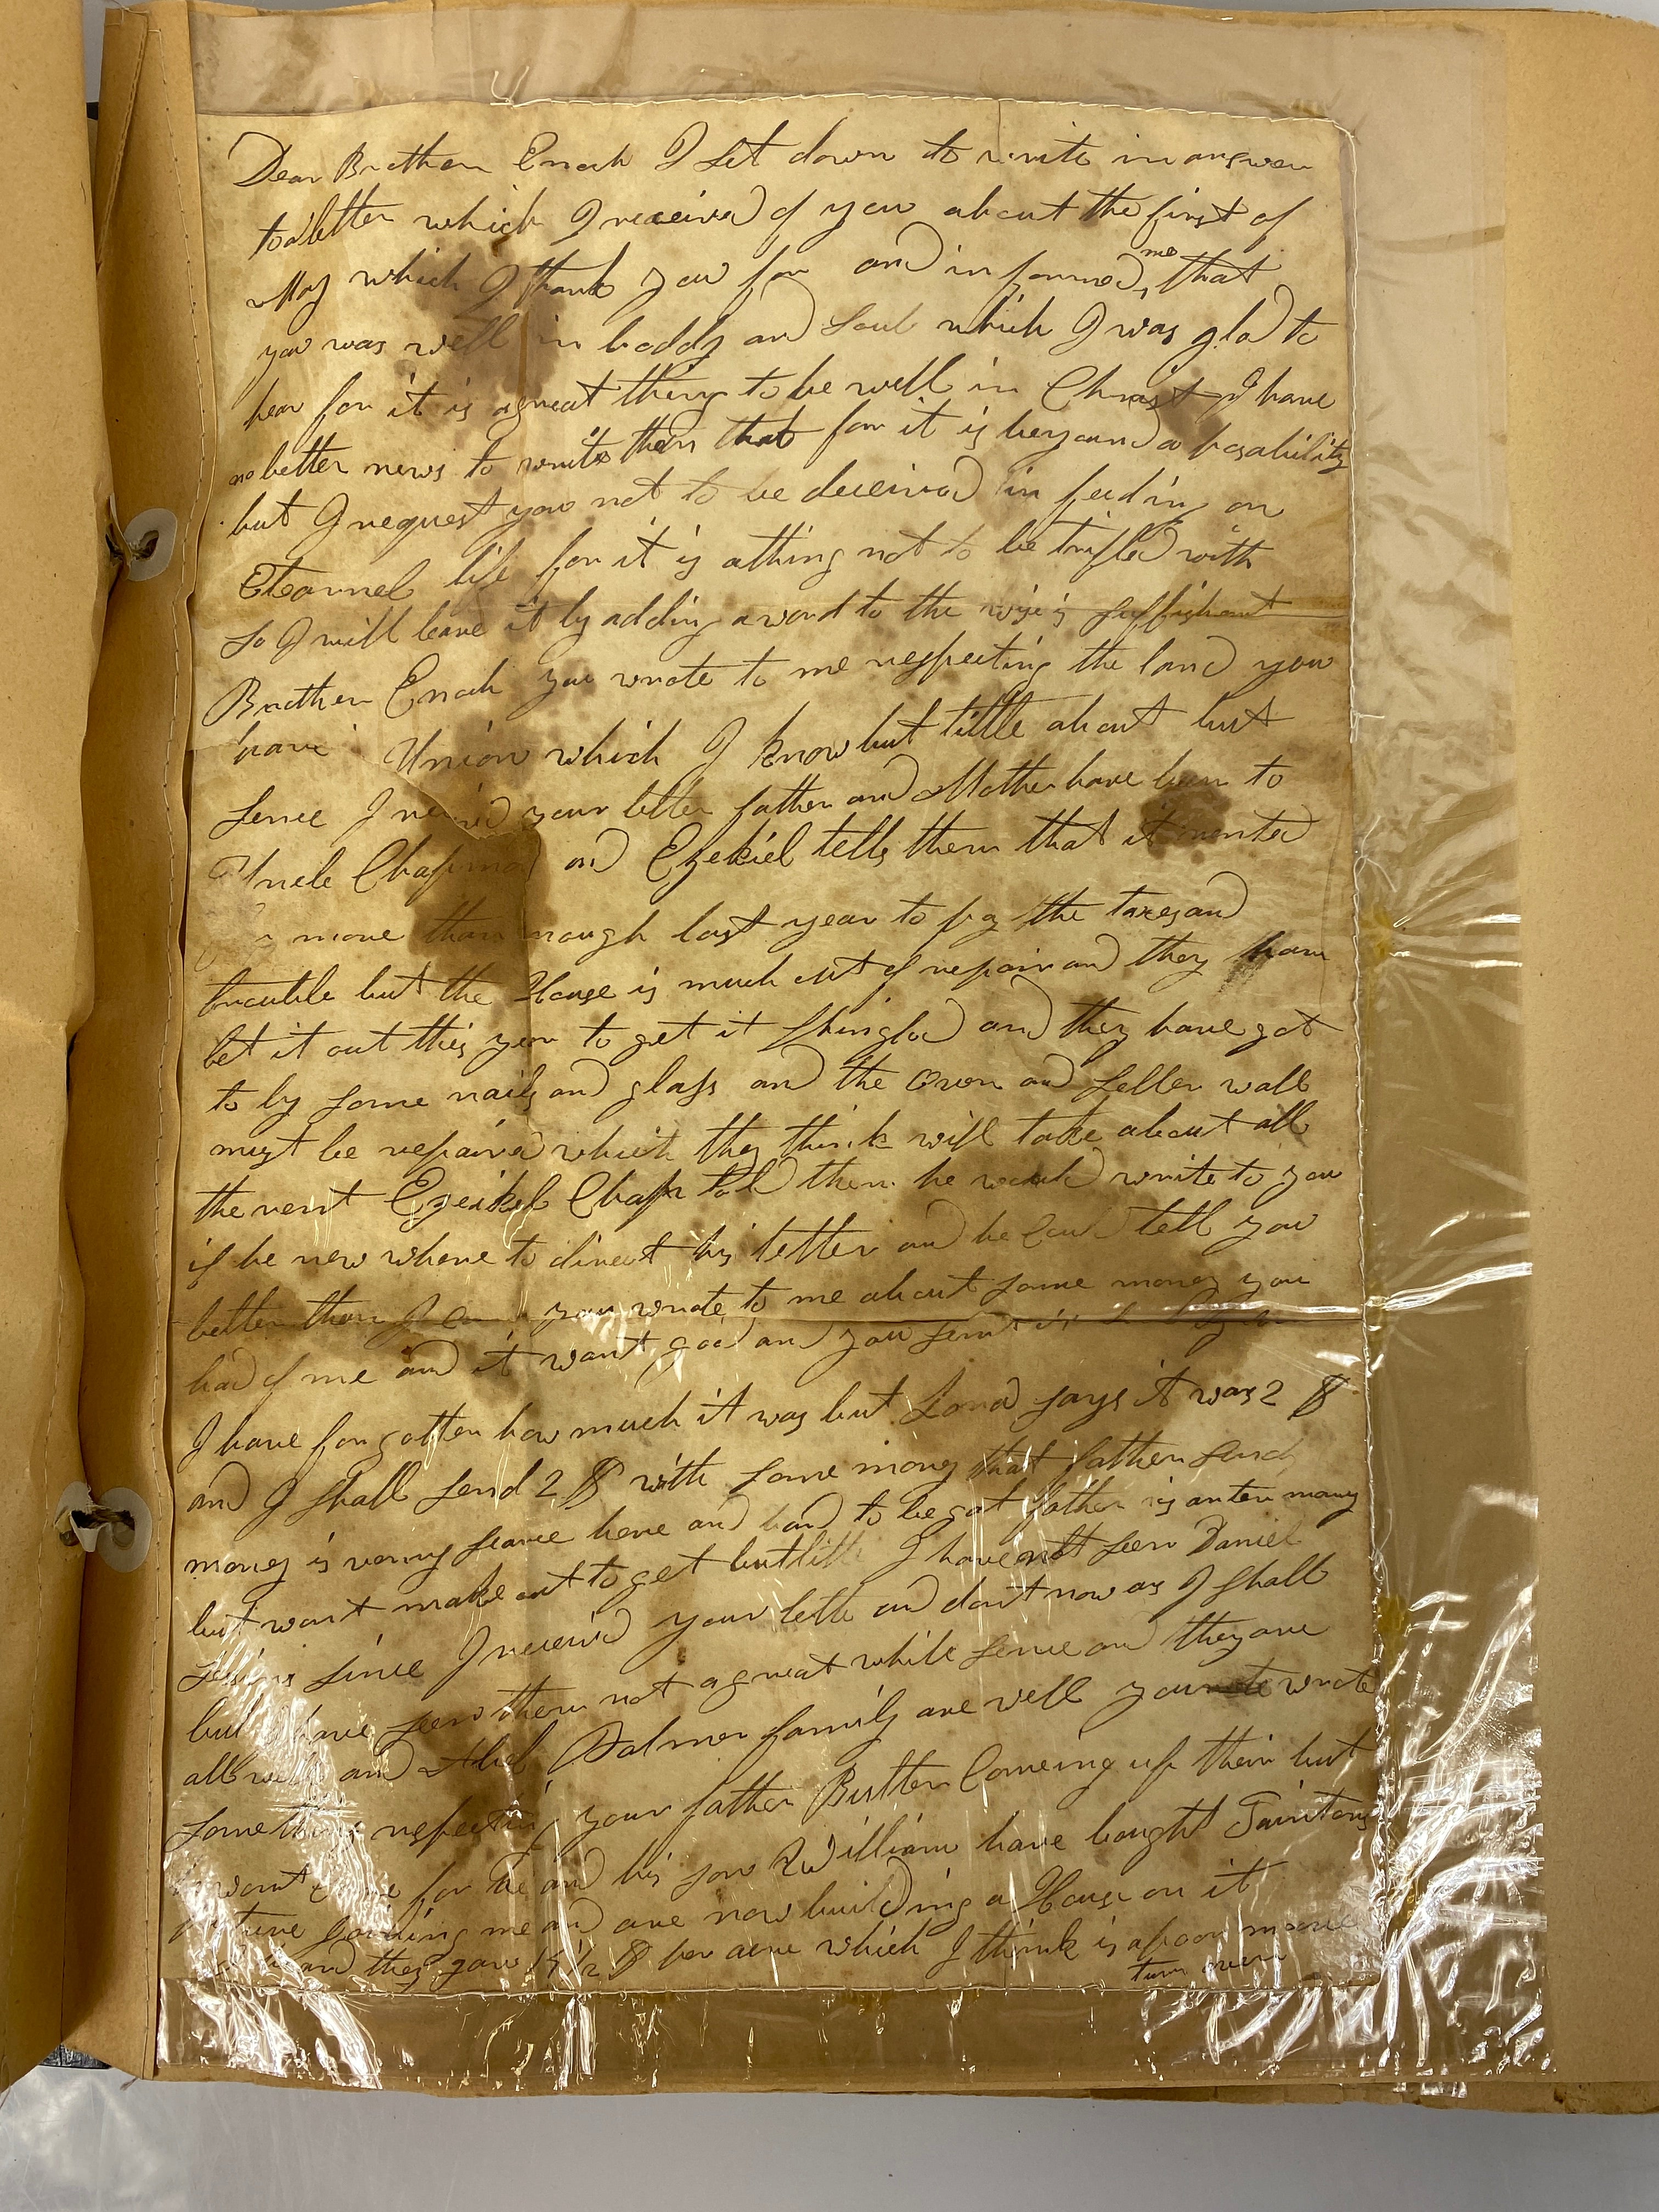 Dear Brother Enoch I Set down to write in answer
to a letter which I receivd of you about the first of
May which I thank you for and in formed me that
you was well in boddy and Soul which I was glad to
hear for it is a great thing to be well in Christ I have
no better news to write then that for it is beyound a posability
but I request you not to be deceived in feeding on
Etarnel life for it is a thing not to be trifled with
So I will leave it by adding a word to the wise is suffishant
Brother Enoch you wrote to me respecting the land you
have Union which I know but little about but
Sence I receivd your letter father and Mother have been to
Uncle Chapman and Ezekiel tells them that it rented
more than nough last year to pay the taxes and
trouble but the House is much out of repair and they have
let it out this year to get it Shingled and they have got
to by some nails and glass and the Oven and Seller wall
must be repaired which they think will take about all
the rent Ezeikel Chapn told them he would write to you
if he new where to direct his letter and he Could tell you
better than I can you wrote to me about some money you
had of me and it want good and you sent it
I have forgotten how much it was but says it was 2 $
and I Shall Send 2 $ with some mony that father Send
money is verry scarce here and hard to be got father is anter many
but wont make out to get but little I have not seen Daniel
since I receivd your lette and dont now as I Shall
but have seen them not a great while sence and they are
all well and Abel Palmer family are well you wrote
something respecting your father Butler Comeing up their but
wont Come for he and his son William have bought Taintors
Joining me and are now building a House on it
and they gave 1/2 $ per acre which I think is a poor move
turn over